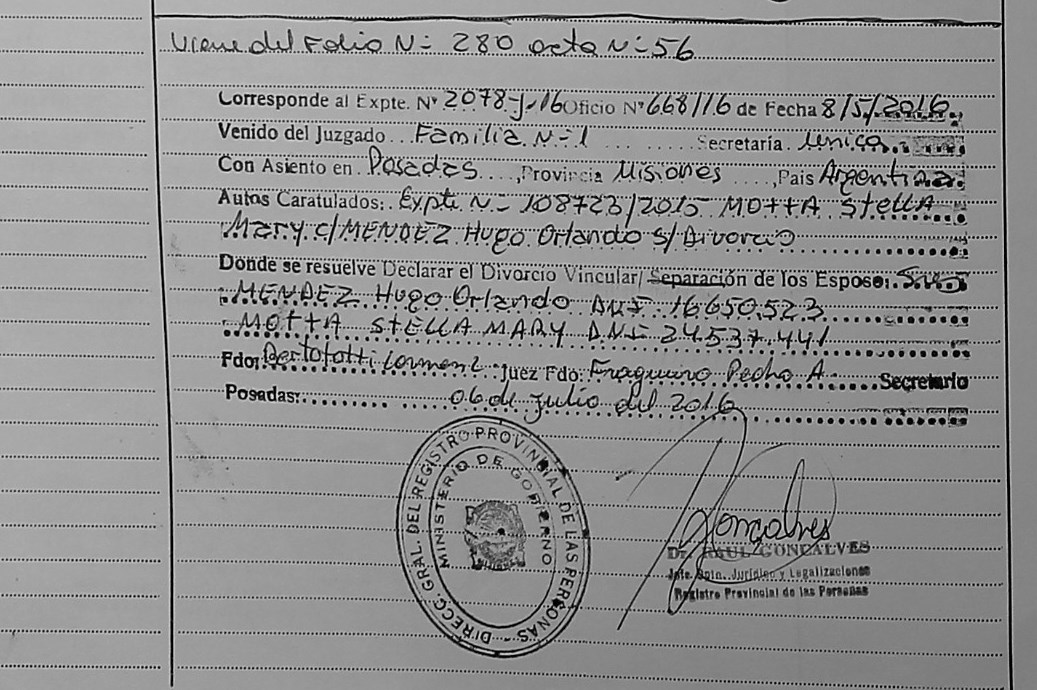 Viene del Folio N- 280 acta N- 56
Corresponde al Expte. Nº 2078-J-16 Oficio Nº 668/16 de Fecha 8/5/2016
Venido del Juzgado Familia N-1 Secretaría Unica
Con Asiento en Posadas, Provincia Misiones, Pais Argentina
Autos Caratulados: Expte N- 108723/2015 MOTTA STELLA
MARY c/ MENDEZ Hugo Orlando s/ Divorcio
Donde se resuelve Declarar el Divorcio Vincular/ Separación de los Esposo:
MENDEZ Hugo Orlando DNI 16.650.523
MOTTA STELLA MARY DNI 24.537.441
Fdo: Juez Fdo: Pedro A. Secretario
Posadas: 06 de Julio del 2016
DIRECC. GRAL. DEL REGISTRO PROVINCIAL DE LAS PERSONAS
MINISTERIO DE GOBIERNO
Goncalves
Dr. RAUL GONCALVES
Jefe Dpto. Jurídico y Legalizaciones
Registro Provincial de las Personas